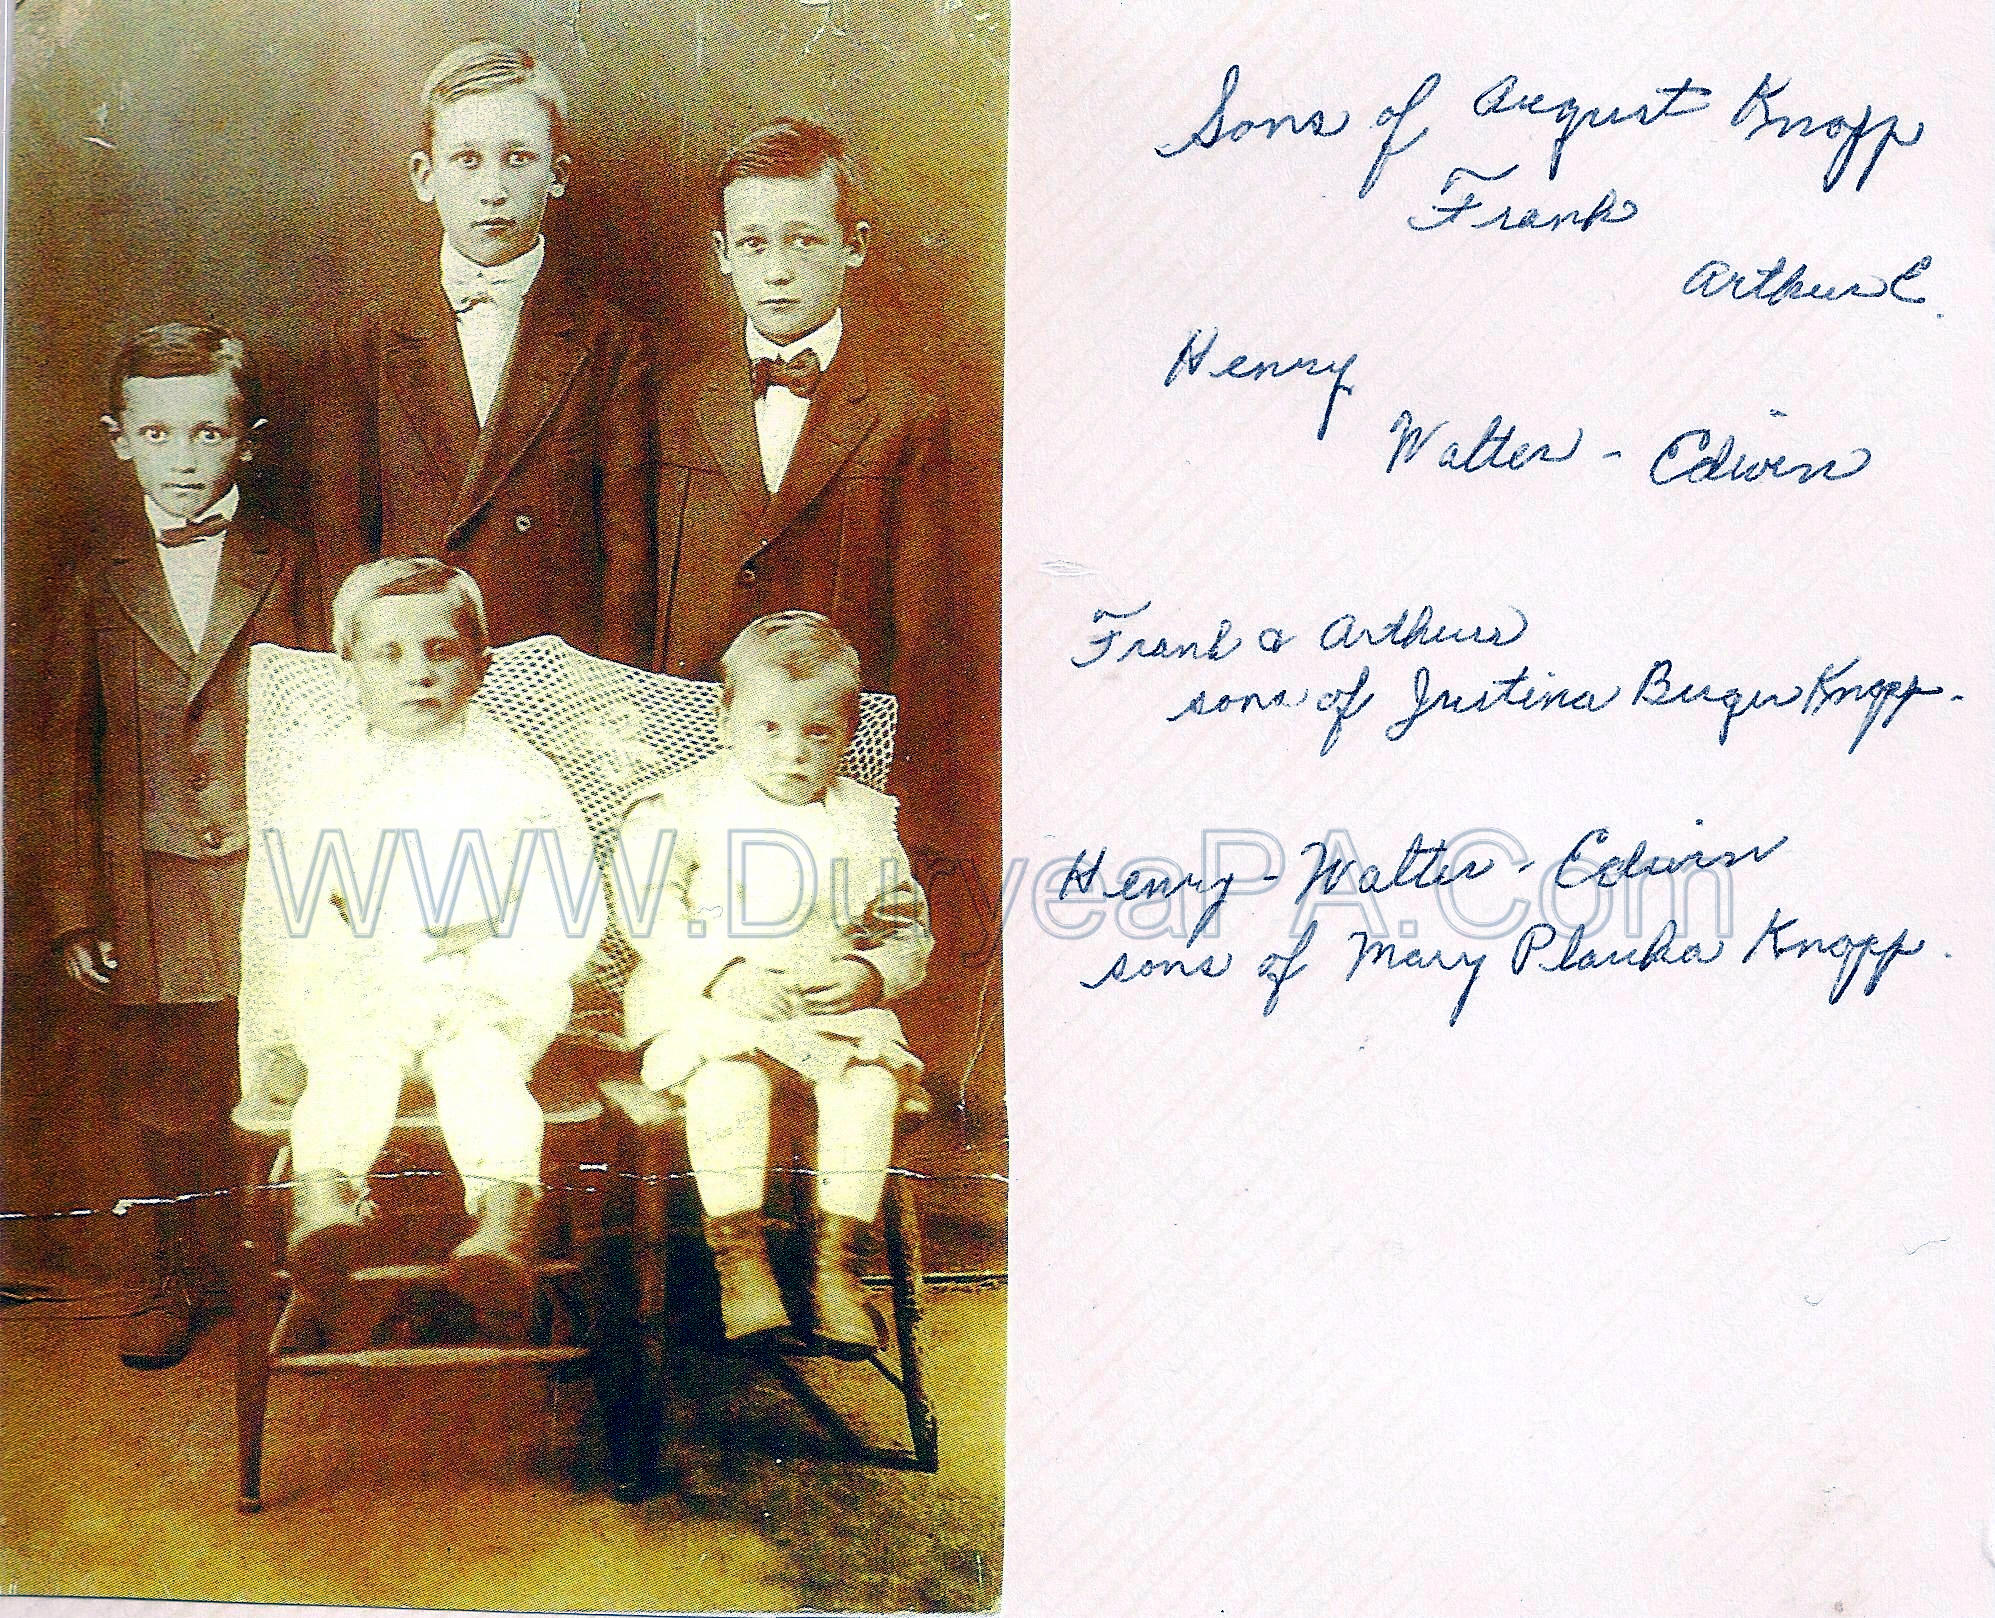 Sons of August Knopp
Frank
Arthur C.
Henry
Walter - Edwin
Frank & Arthur
sons of Justina Buger Knopp.
Henry - Walter - Edwin
sons of Mary Plauka Knopp.
WWW.DuryeaPA.Com